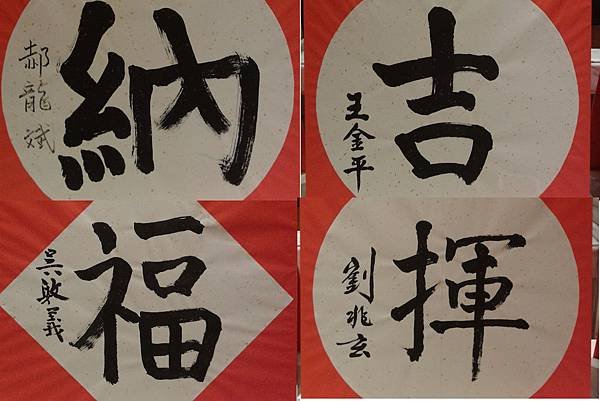 納
郝龍斌
吉
王金平
福
吳敦義
揮
劉兆玄